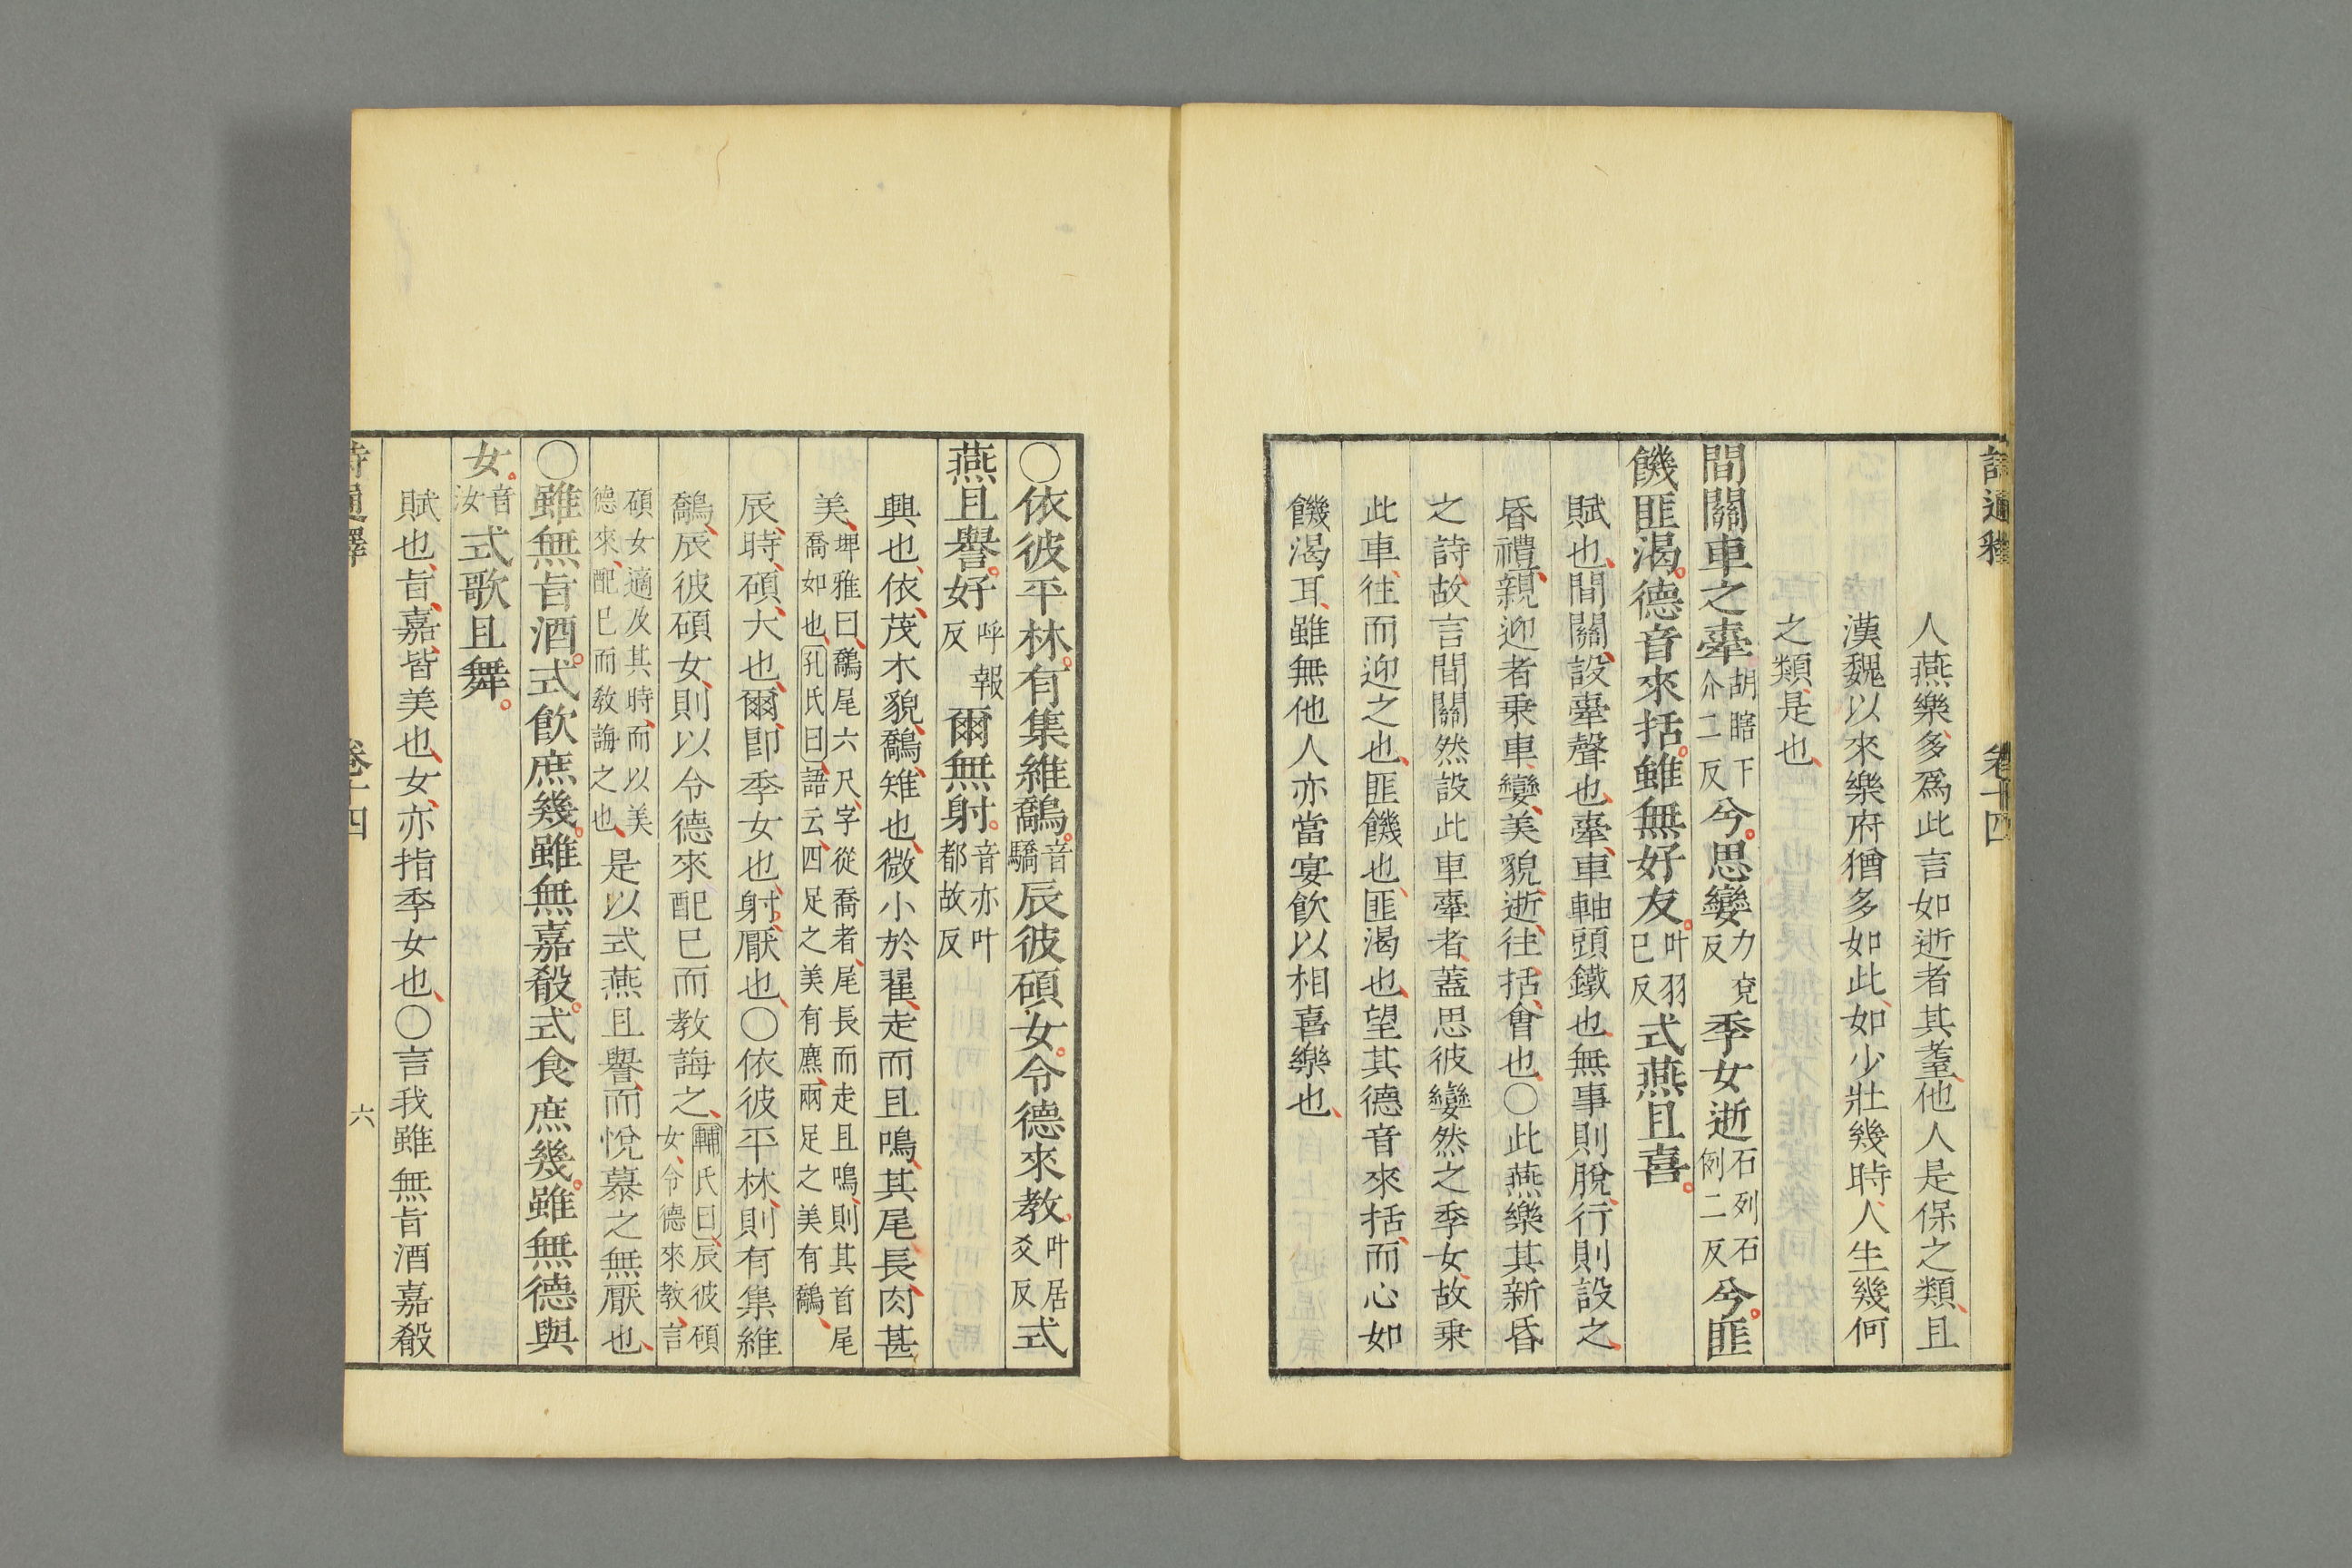 詩通釋 卷十四
人燕樂多爲此言如逝者其耋他人是保之類且
漢魏以來樂府猶多如此如少壯幾時人生幾何
之類是也
間關車之舝胡瞎下介二反兮思孌力兗反季女逝石列石例二反兮匪
饑匪渴德音來括雖無好友叶羽已反式燕且喜
賦也間關設舝聲也舝車軸頭鐵也無事則脫行則設之
昏禮親迎者乗車孌美貌逝往括會也〇此燕樂其新昏
之詩故言間關然設此車舝者蓋思彼孌然之季女故乗
此車往而迎之也匪饑也匪渴也望其德音來括而心如
饑渴耳雖無他人亦當宴飲以相喜樂也
〇依彼平林有集維鷮音驕辰彼碩女令德來教叶居爻反式
燕且譽好呼報反爾無射音亦叶都故反
興也依茂木貌鷮雉也微小於翟走而且鳴其尾長肉甚
美埤雅曰鷮尾六尺字從喬者尾長而走且鳴則其首尾喬如也孔氏曰語云四足之美有麃兩足之美有鷮
辰時碩大也爾卽季女也射厭也〇依彼平林則有集維
鷮辰彼碩女則以令德來配已而教誨之輔氏曰辰彼碩女令德來教言
碩女適及其時而以美德來配已而教誨之也是以式燕且譽而悅慕之無厭也
〇雖無旨酒式飲庶幾雖無嘉殽式食庶幾雖無德與
女音汝式歌且舞
賦也旨嘉皆美也女亦指季女也〇言我雖無旨酒嘉殽
詩通釋 卷十四 六